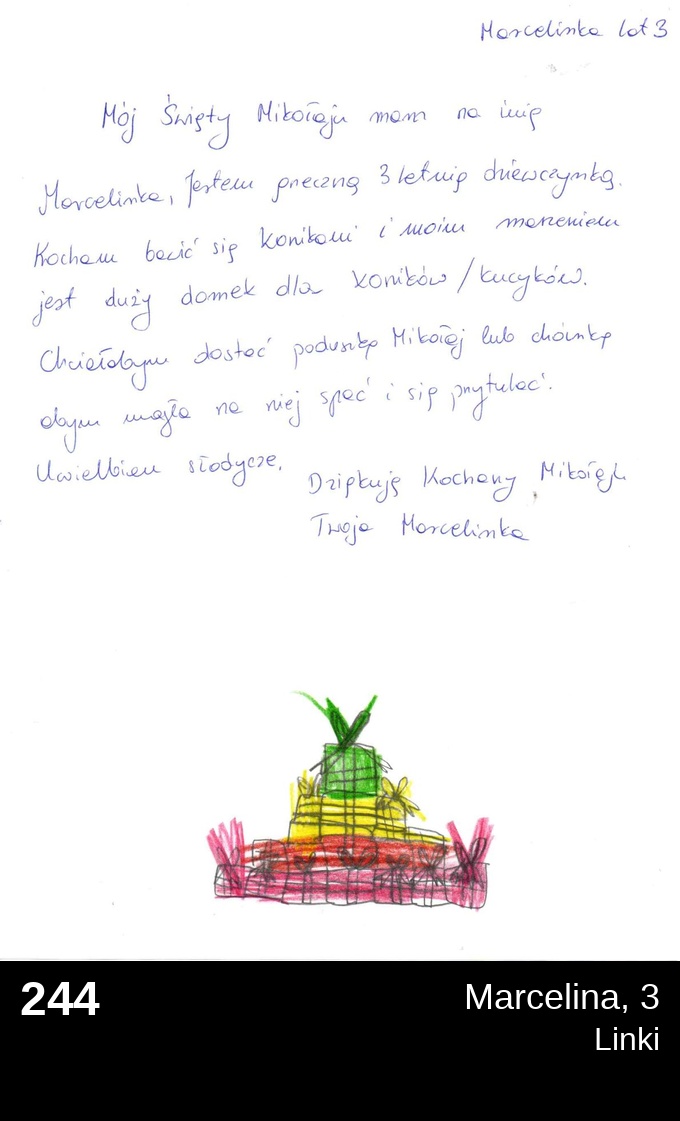 Marcelinka lat 3
Mój Święty Mikołaju mam na imię
Marcelinka, Jestem grzeczną 3 letnią dziewczynką.
Kocham bawić się konikami i moim marzeniem
jest duży domek dla koników / kucyków.
Chciałabym dostać poduszkę Mikołaj lub choinkę
abym mogła na niej spać i się przytulać.
Uwielbiam słodycze.
Dziękuję Kochany Mikołaju
Twoja Marcelinka
244
Marcelina, 3
Linki